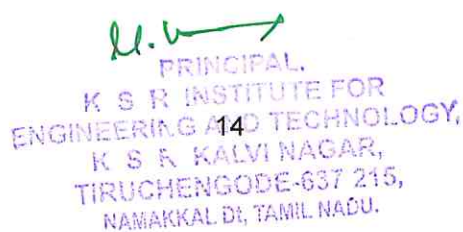 PRINCIPAL.
K S R INSTITUTE FOR
ENGINEERING AND TECHNOLOGY,
14
K S R KALVI NAGAR,
TIRUCHENGODE-637 215,
NAMAKKAL Dt, TAMIL NADU.